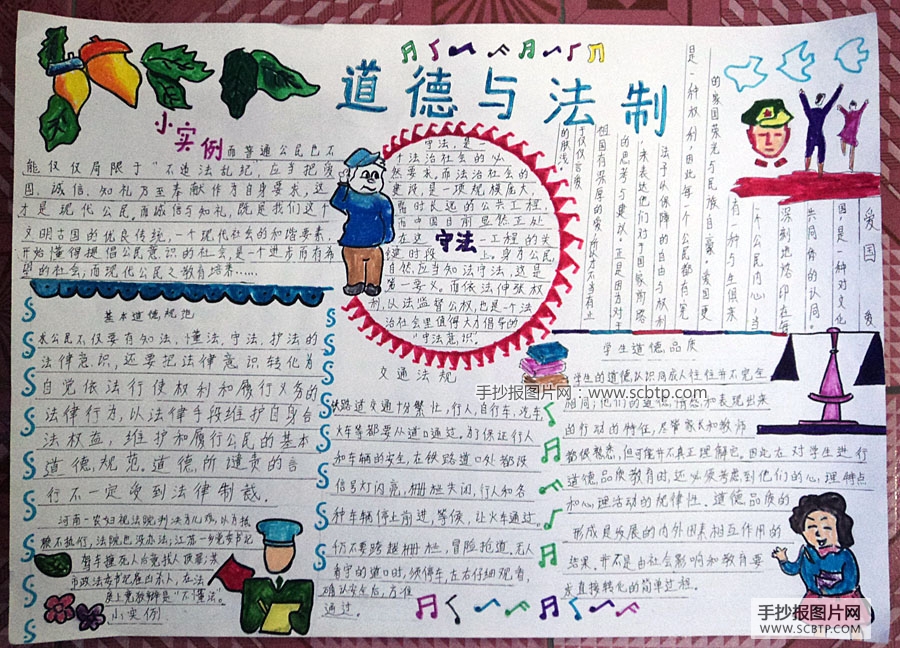 道德与法制
小实例
而普通公民也不
能仅仅局限于“不违法乱纪,应当把爱
国、诚信、知礼乃至奉献作为自身要求,这
才是现代公民。而诚信与知礼,既是我们这个
文明古国的优良传统,一个现代社会的和谐要素
开始懂得提倡公民意识的社会,是一个进步而有希
望的社会,而现代公民之教育培养……
守法,是一
个法治社会的必
然要求,而法治社会的
建设,是一项规模庞大、
需时长远的公共工程,
而中国目前显然正处
在这 守法 一工程的关
键时段上。身为公民
自然应当知法守法,这是
第一要义。而依法伸张权
利,以法监督公权,也是一个法
治社会里值得大力倡导的
“守法意识。
爱国
爱
国是一种对文化
共同体的认同。
深刻地烙印在每
个公民内心,当
有一种与生俱来
的家国荣光与民族自豪,爱国更
是一种权利,因此每个公民都有宪
法予以保障的自由与权利
来表达他们对于国家前路
的思考与建议。正是因为对于
祖国有深厚的爱,所以方不当有止
于仅仅言爱
的肤浅。
基本道德规范
求公民不仅要有知法、懂法、守法、护法的
法律意识,还要把法律意识转化为
自觉依法行使权利和履行义务的
法律行为,以法律手段维护自身合
法权益,维护和履行公民的基本
道德规范。道德所谴责的言
行不一定受到法律制裁。
河南一农妇视法院判决为儿戏,以为抗
市政法委书记
是“不懂法”。
小实例
交通法规
铁路过交通十分繁忙,行人,自行车,汽车
火车等都要从道口通过。为了保证行人
和车辆的安全,在铁路道口处都设
信号灯闪亮,栅栏关闭,行人和各
种车辆停止前进,等候,让火车通过。
仍不要跨越栅栏,冒险抢道。无人
看守的道口时,须停车,左右仔细观看,
确认安全后,方准
通过。
学生道德品质
学生的道德认识同成人往往并不完全
相同;他们的道德情感和表现出来
的行动的特征,尽管家长和教师
都很熟悉,但可能并不真正理解它。因此在对学生进行
道德品质教育时,还必须考虑到他们的心理特点
和心理活动的规律性。道德品质的
形成是发展的内外因素相互作用的
结果,并不是由社会影响和教育要
求直接转化的简单过程。
手抄报图片网:www.scbtp.com
手抄报图片网
WWW.SCBTP.COM